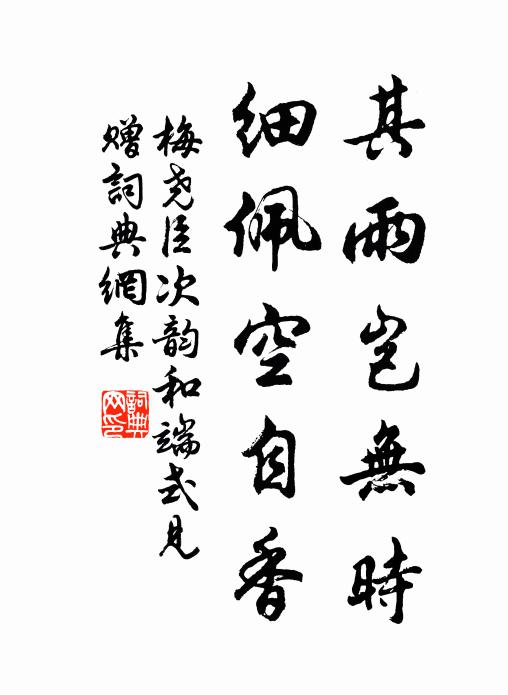 其雨豈無時
細佩空自香
梅尧臣次韵和端式見
贈詞典網集
詞典网印